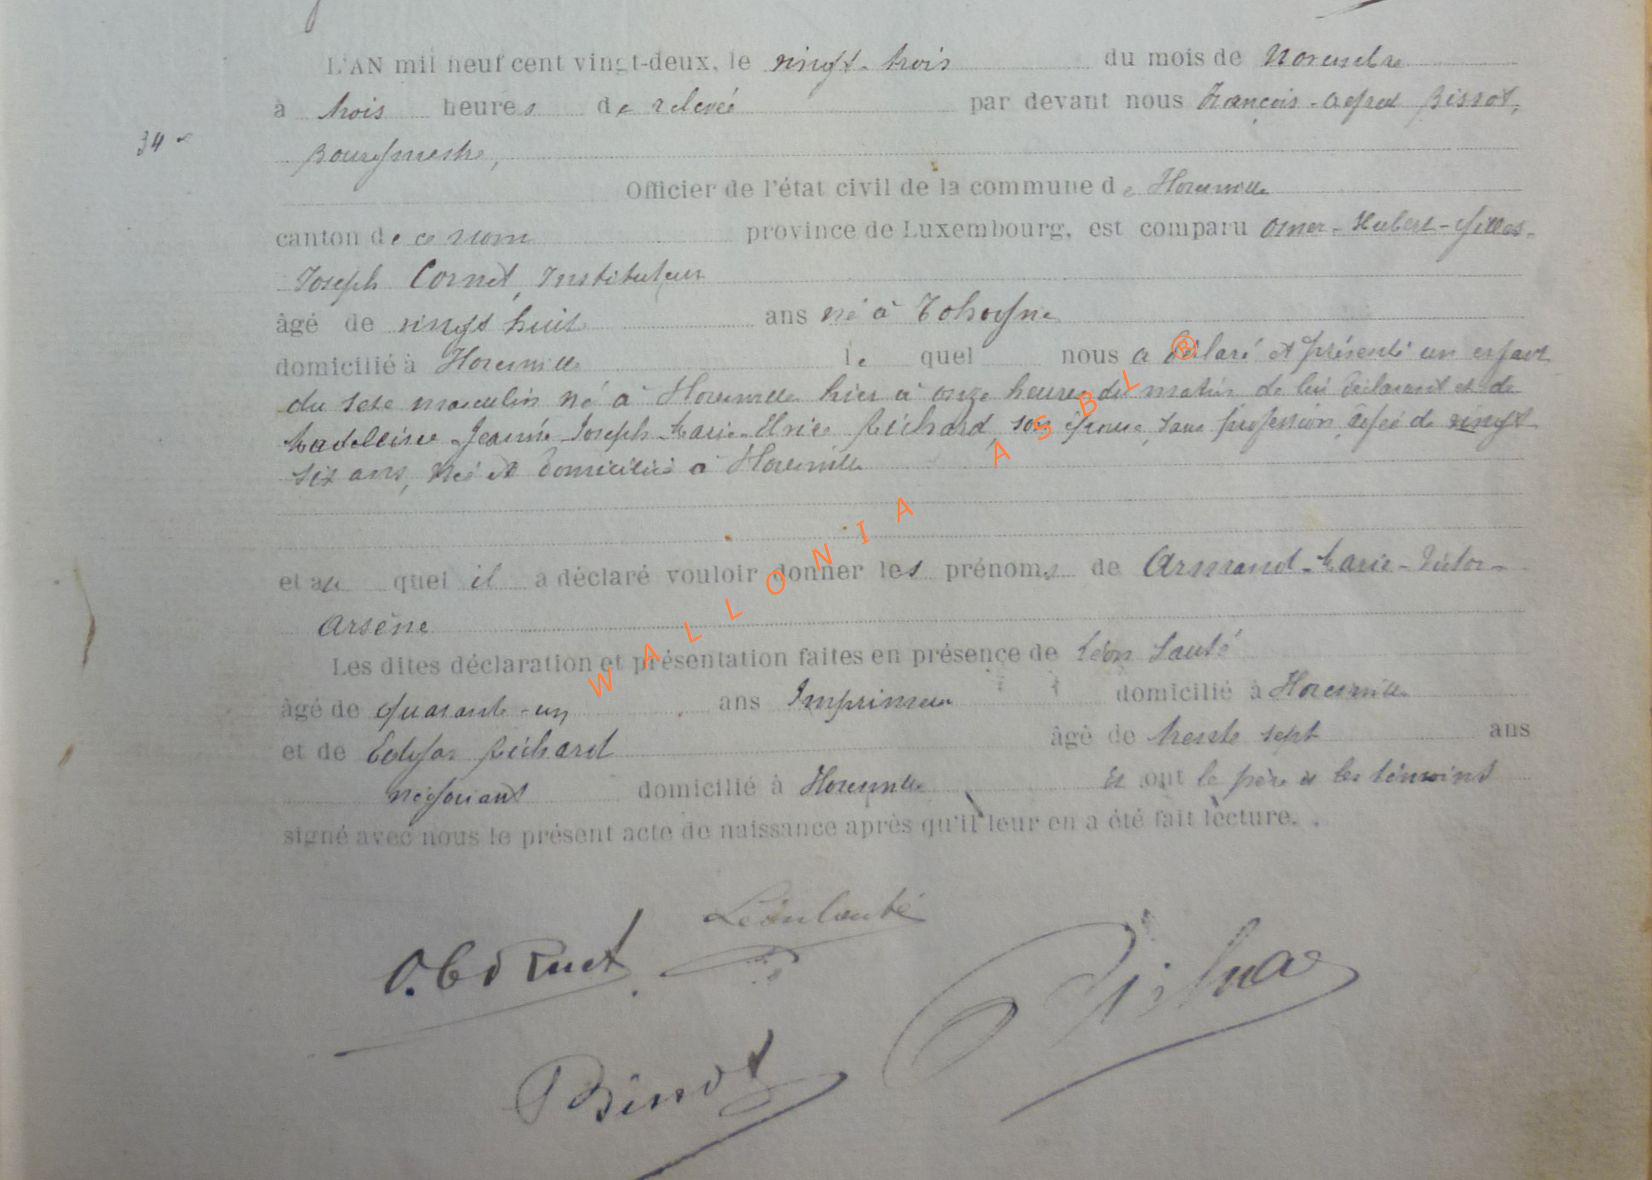 L'AN mil neuf cent vingt-deux, le vingt-trois du mois de Novembre
à trois heures de relevée par devant nous François-Alfred Bissot,
34
Bourgmestre,
Officier de l'état civil de la commune de Houremville
canton de ce nom province de Luxembourg, est comparu Omer-Hubert-Gilles-
Joseph Cornet, Instituteur
âgé de vingt huit ans né à Tohogne
domicilié à le quel nous a déclaré et présenté un enfant
du sexe masculin né à hier à onze heures du matin de lui déclarant et de
Madeleine-Jeanne-Joseph-Marie- son épouse, sans profession, âgée de vingt
six ans, née et domiciliée à
et au quel il a déclaré vouloir donner les prénoms de Armand-Marie-Victor-
Arsène
Les dites déclaration et présentation faites en présence de Léon Lauté
âgé de quarante-un ans Imprimeur domicilié à
et de Edgar Richard âgé de trente sept ans
négociant domicilié à Et ont le père et les témoins
signé avec nous le présent acte de naissance après qu'il leur en a été fait lecture.
O. Cornet
Léon Lauté
Bissot
WALLONIA ASBL ®